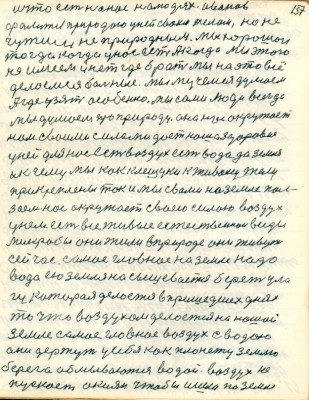 157
и что есть какое на людях
природою у ней своим телом, но не
чужим, не природным. Мы хорошо
тогда когда у нас есть. А когда мы этого
не имеем и негде брать мы на это вей
делаемся больные. мы мучемся думаем
А где взять особенно. мы сами люди всегда
мы думаем про природу, она нас окружает
нам своими силами дает наша здоровье
у ней для нас есть воздух есть вода да земля
а к чему мы как клещуки к живому телу
прикреплены так и мы сваи на земле
окружает своею силою воздух
у нем есть все живое естественного виды
микробы они жили в природе они живут
сей час самое главное на земле надо
вода ею земля насыщается берет ула
гу которая делается в пришедших днях
то что воздухом делается на нашей
земле самое главное воздух с водою
они держут у себя как планету землю
берега обмываются водой воздух не
пускает а киям чтобы шило по земле